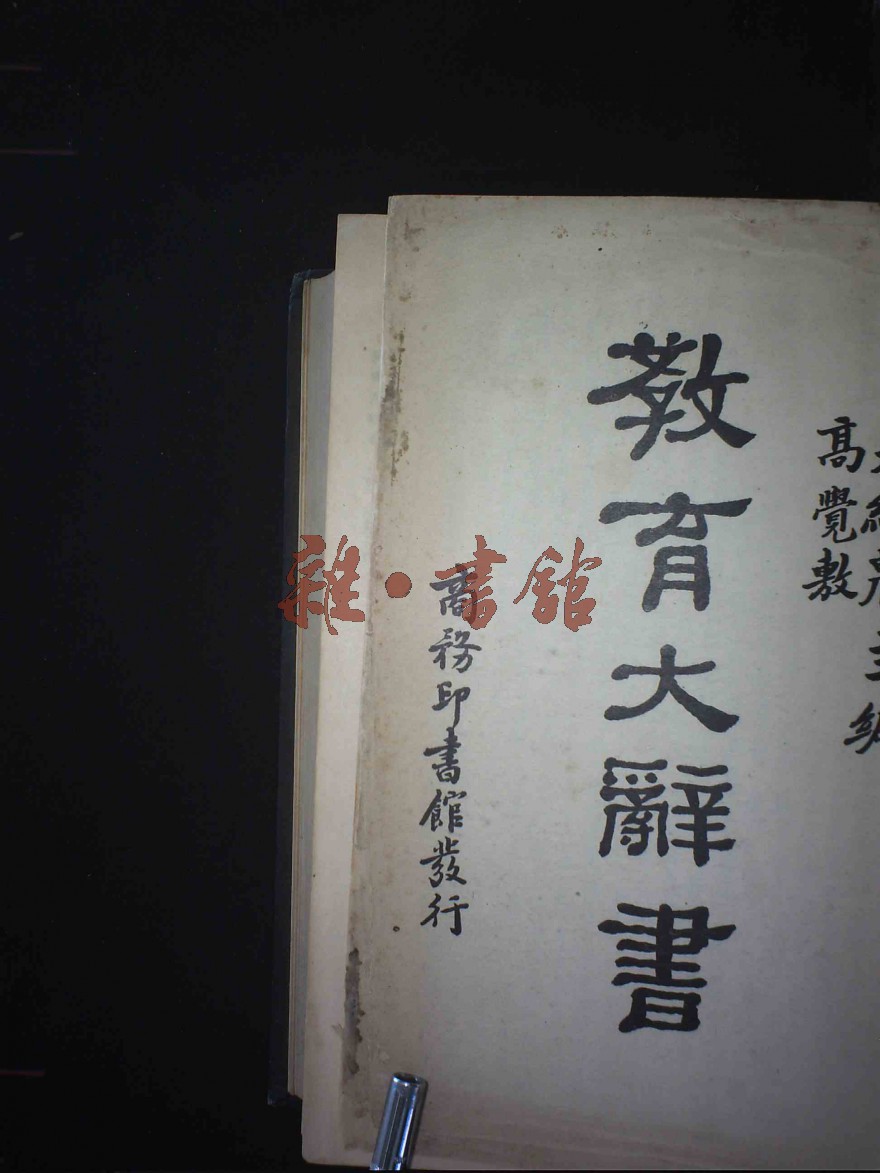 主編
高覺敷
教育大辭書
商務印書館發行
雜·書館